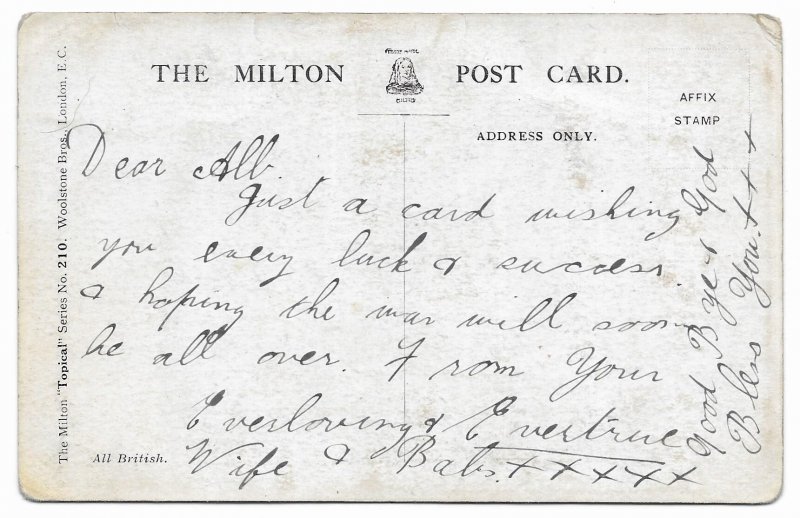 THE MILTON POST CARD.
AFFIX
STAMP
ADDRESS ONLY.
The Milton "Topical" Series No. 210. Woolstone Bros., London, E.C.
All British.
Dear Alb.
Just a card wishing
you every luck & success.
& hoping the war will soon
be all over. From Your
Everloving & Evertrue
Wife & Babs. x x x x x
good Bye & God
Bless You. + + +